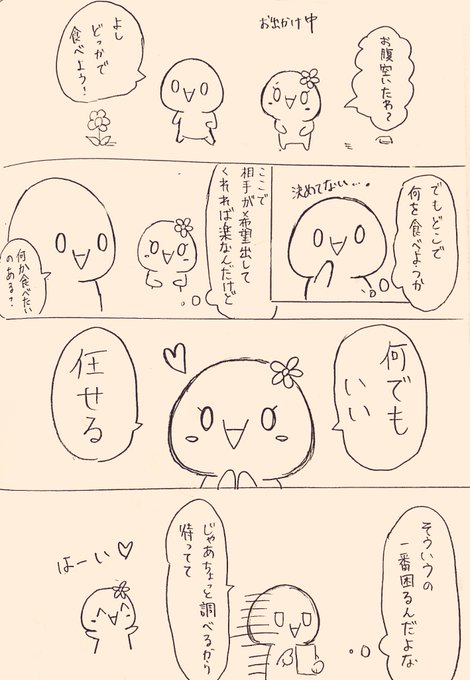 お出かけ中
お腹空いたわ〜
よし
どっかで
食べよう!
でもどこで
何を食べよっか
決めてない...
ここで
相手が希望出して
くれれば楽なんだけど
何か食べたい
のある?
何でも
いい
任せる
そういうの
一番困るんだよな
じゃあちょっと調べるから
待ってて
はーい♡